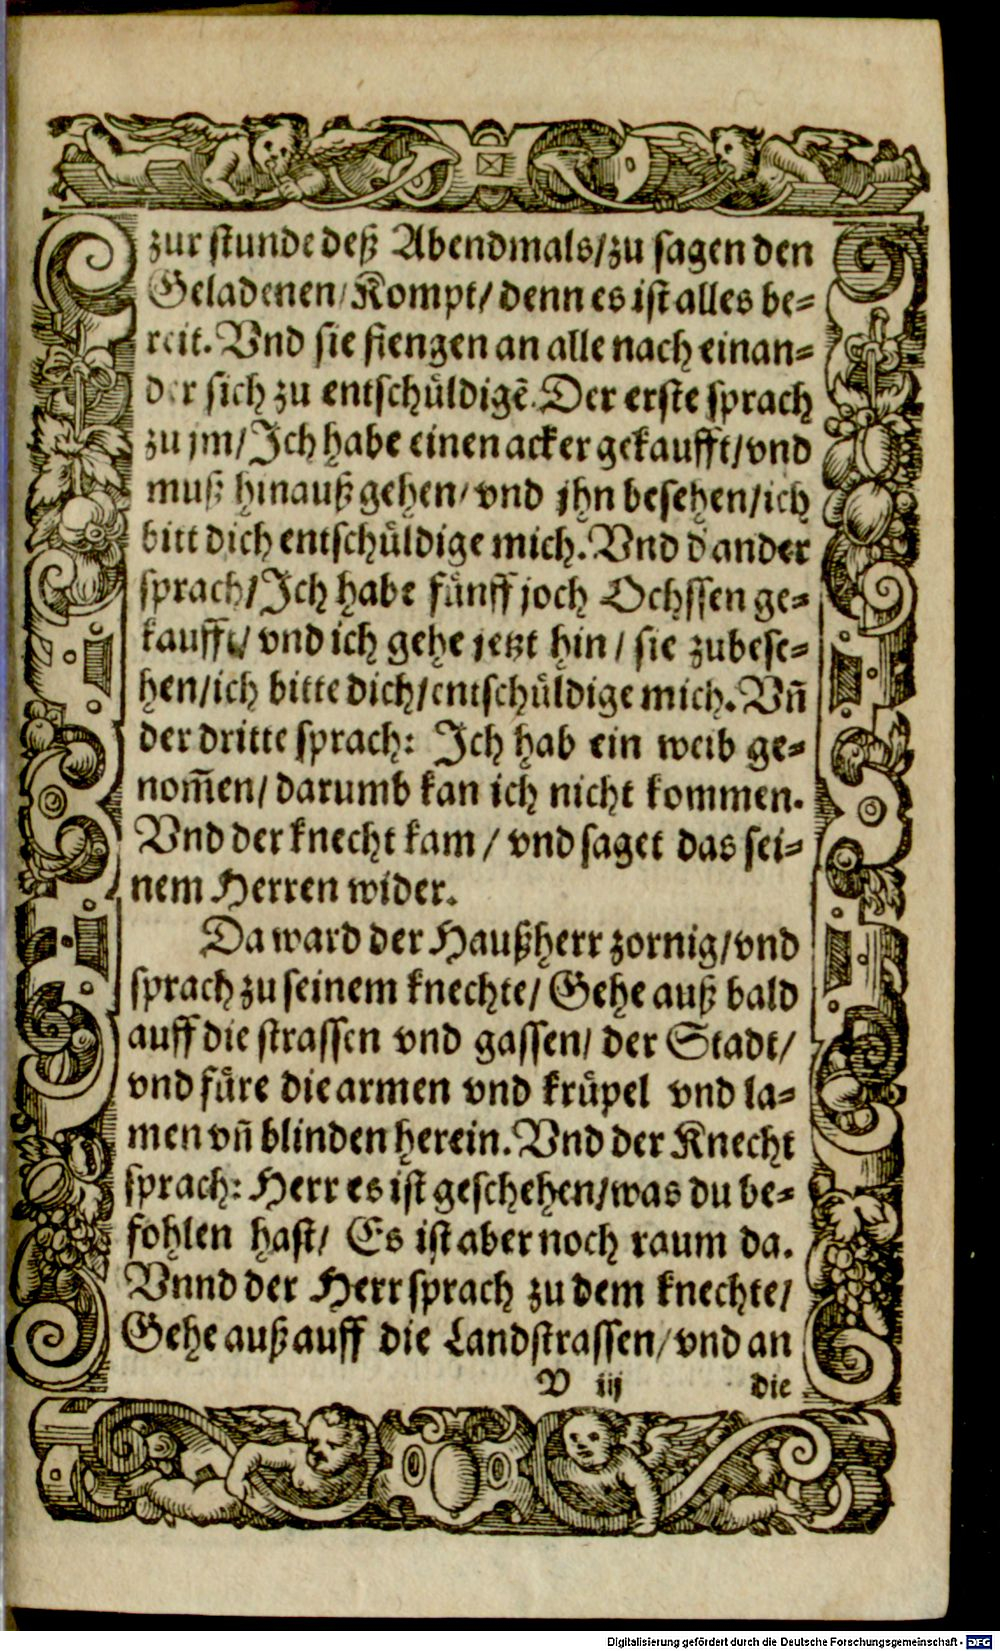 zur stunde deß Abendmals/zu sagen den
Geladenen/Kompt/ denn es ist alles be-
reit. Vnd sie fiengen an alle nach einan-
der sich zu entschüldigē. Der erste sprach
zu jm/Ich habe einen acker gekaufft/vnd
muß hinauß gehen/ vnd jhn besehen/ich
bitt dich entschüldige mich. Vnd d ander
sprach/Ich habe fünff joch Ochssen ge-
kaufft/ vnd ich gehe jetzt hin / sie zubese-
hen/ich bitte dich/entschüldige mich. Vñ
der dritte sprach: Ich hab ein weib ge-
nom̄en/ darumb kan ich nicht kommen.
Vnd der knecht kam / vnd saget das sei-
nem Herren wider.
Da ward der Haußherr zornig/vnd
sprach zu seinem knechte/ Gehe auß bald
auff die strassen vnd gassen/ der Stadt/
vnd füre die armen vnd krüpel vnd la-
men vñ blinden herein. Vnd der Knecht
sprach: Herr es ist geschehen/was du be-
fohlen hast/ Es ist aber noch raum da.
Vnnd der Herr sprach zu dem knechte/
Gehe auß auff die Landstrassen/vnd an
V iij die
Digitalisierung gefördert durch die Deutsche Forschungsgemeinschaft - DFG